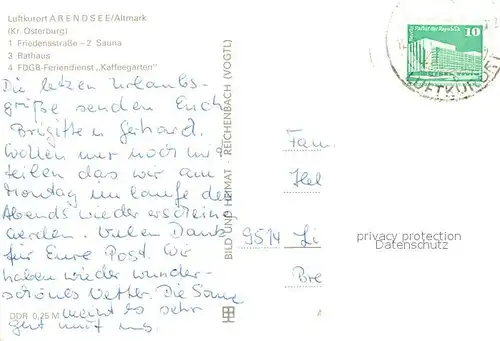 Luftkurort ARENDSEE/Altmark
(Kr. Osterburg)
1 Friedensstraße – 2 Sauna
3 Rathaus
4 FDGB-Feriendienst „Kaffeegarten“
Die letzen Urlaubs-
grüße senden Euch
Brigitte u Gerhard.
Wollen nur noch mit
teilen das wir am
Montag im laufe des
Abends wieder erscheinen
werden. Vielen Dank
für Eure Post. Wir
haben wieder wunder-
schönes Wetter. Die Sonne
meint es sehr
gut mit uns.
DDR 0,25 M
BILD UND HEIMAT · REICHENBACH (VOGTL)
Palast der Republik
10
LUFTKURORT
Fam.
Hel
9514 Li
Bre
privacy protection
Datenschutz